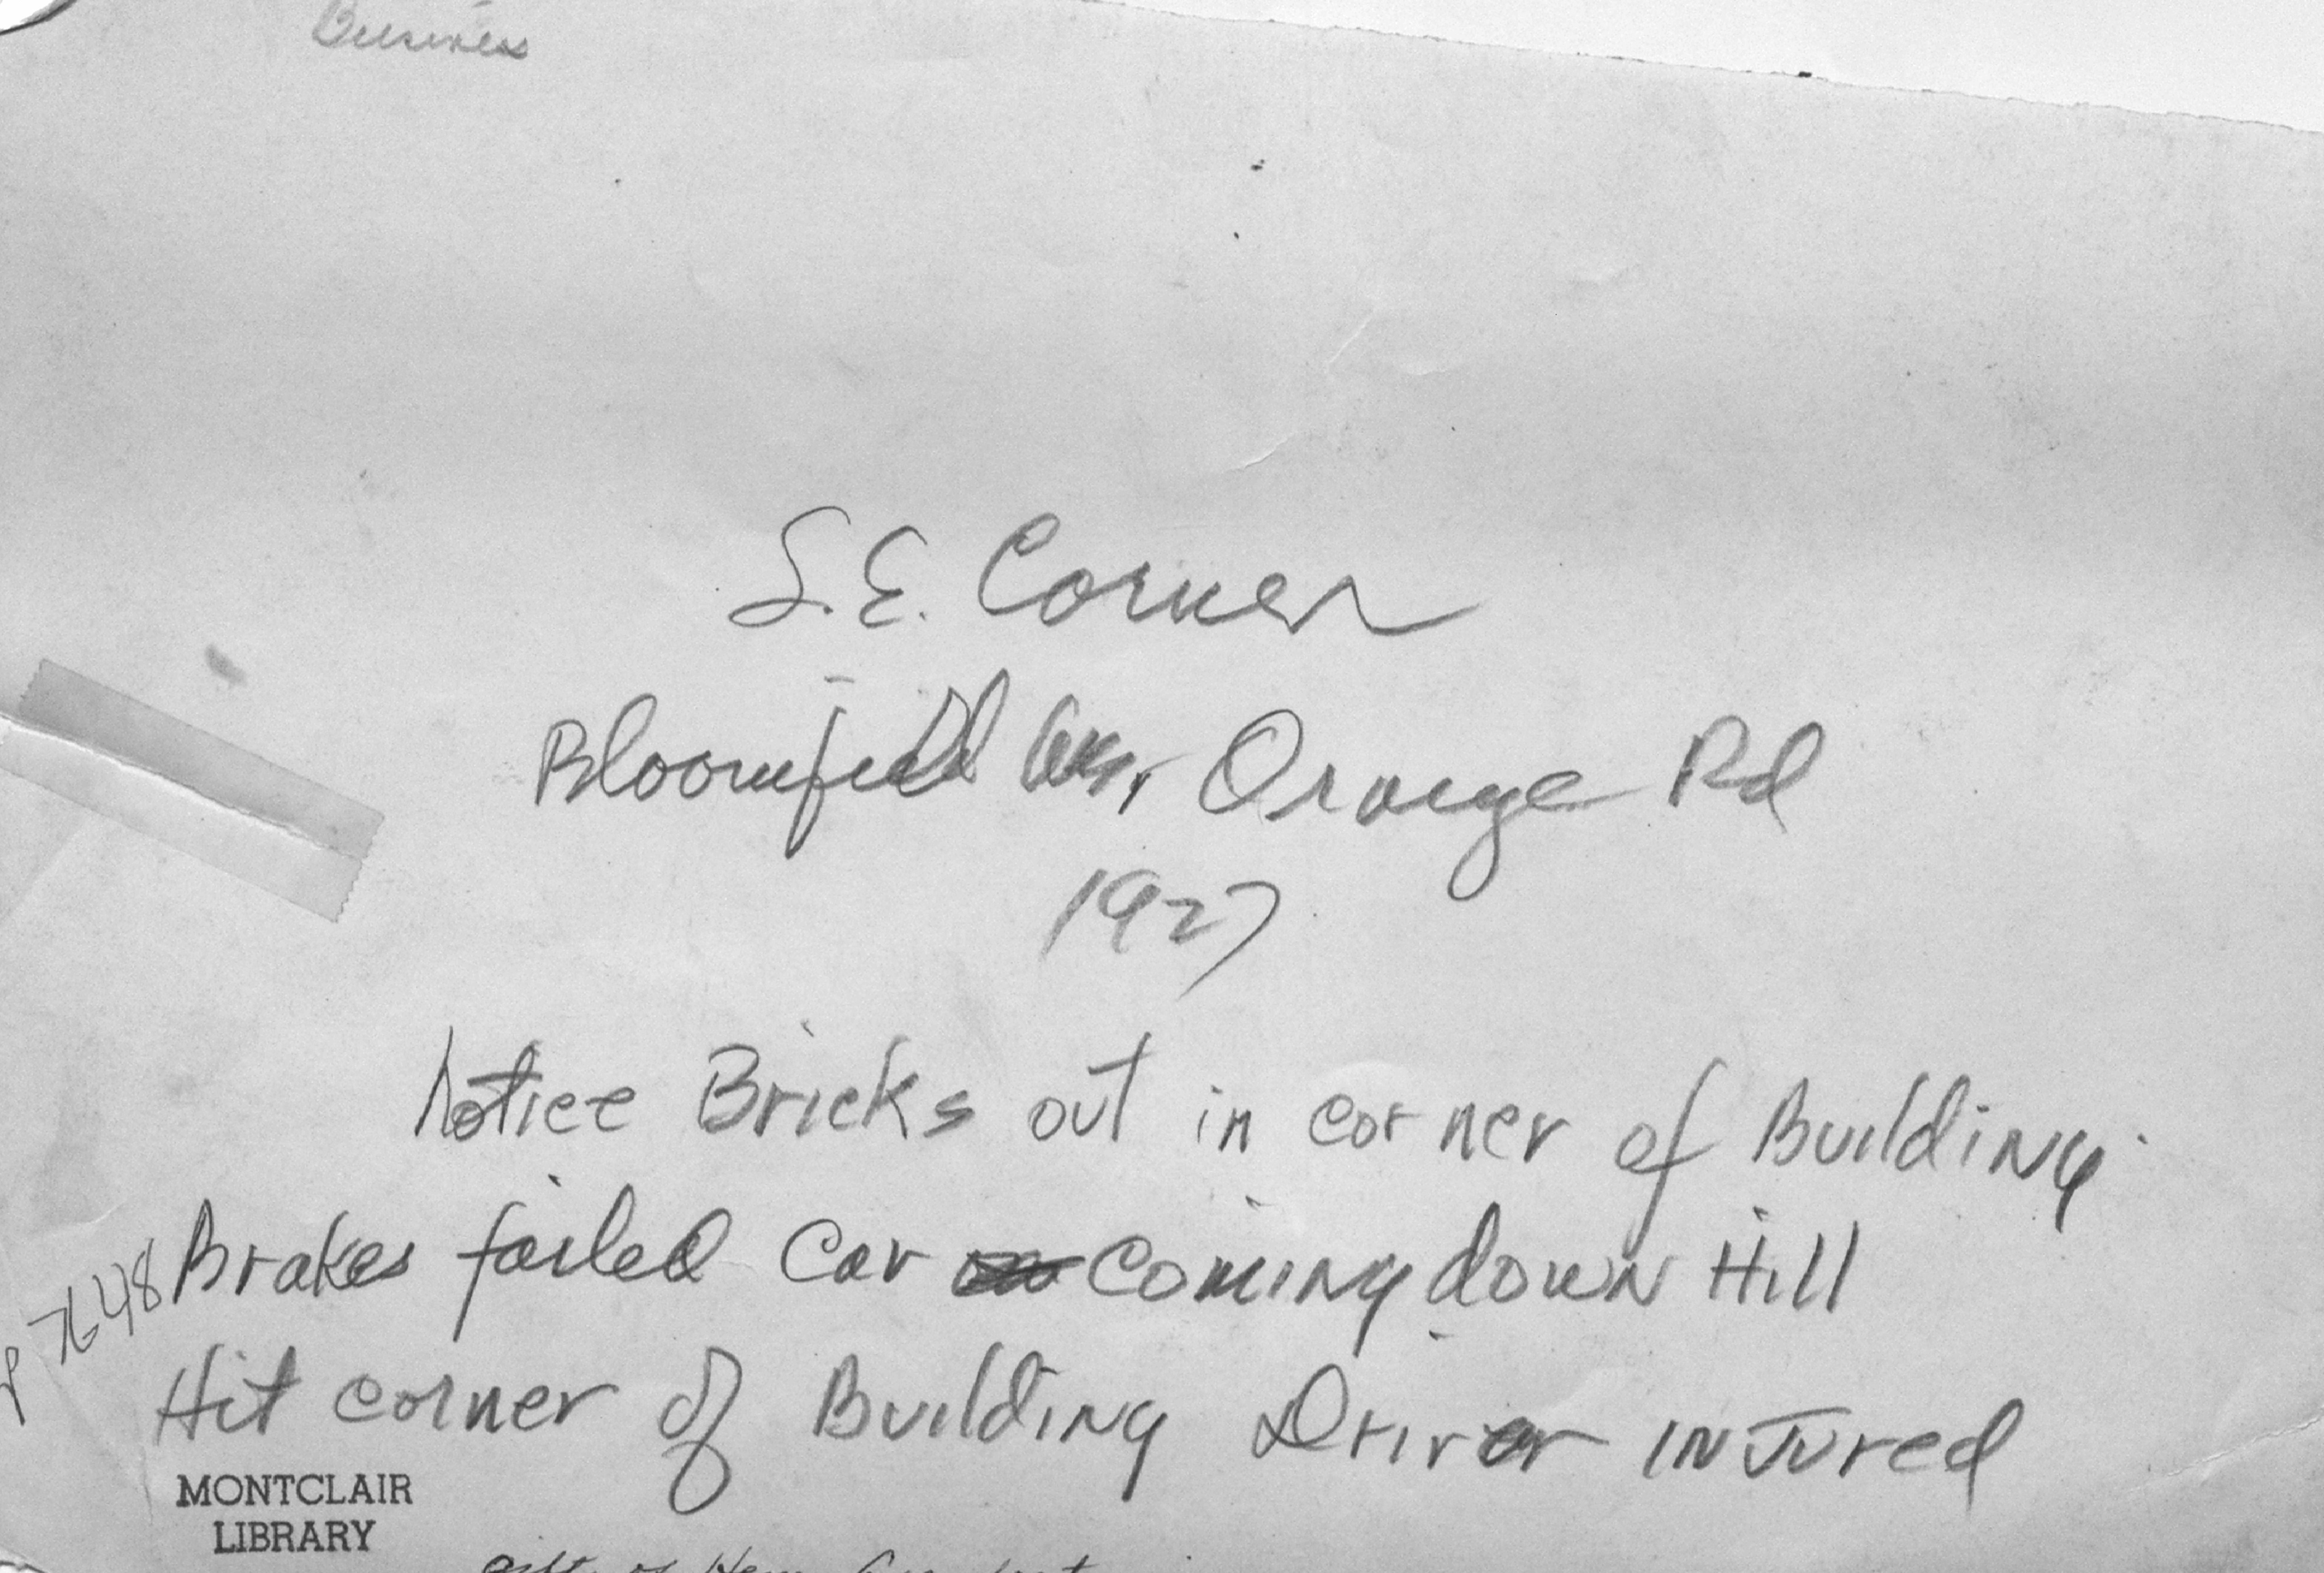 Business
S.E. Corner
Bloomfield Ave, Orange Rd
1927
Notice Bricks out in corner of Building
Brakes failed Car coming down Hill
Hit corner of Building Driver injured
7648
MONTCLAIR
LIBRARY
gift of